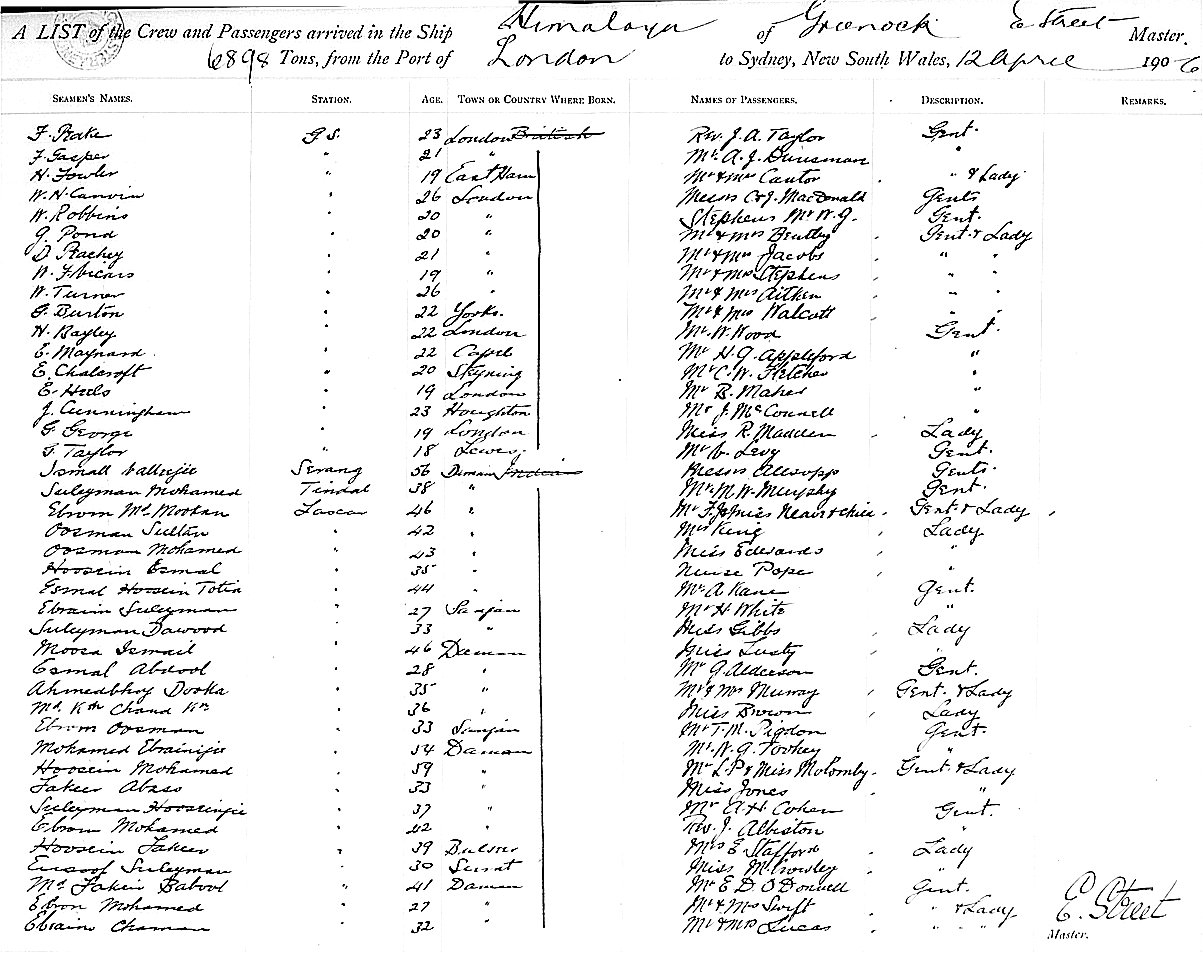 A LIST of the Crew and Passengers arrived in the Ship Himalaya of Greenock E Street Master.
6898 Tons, from the Port of London to Sydney, New South Wales, 12 April 1906
SEAMEN'S NAMES. STATION. AGE. TOWN OR COUNTRY WHERE BORN. NAMES OF PASSENGERS. DESCRIPTION. REMARKS.
F. Rake G.S. 23 London British Rev. J. A. Taylor Gent.
F. Gasper " 21 " Mr. A. J. Dunsman "
H. Fowler " 19 East Ham Mr & Mrs Cantor " & Lady
W. H. Canvin " 26 London Messrs C & J. MacDonald Gents
W. Robbins " 20 " Stephens Mr W. G. Gent.
G. Pond " 20 " Mr & Mrs Bentley Gent. & Lady
D. " 21 " Mr & Mrs Jacobs " "
W. " 19 " Mr & Mrs Stephens " "
W. Turner " 26 " Mr & Mrs Aitken " "
G. Burton " 22 Yorks. Mr & Mrs Walcott " "
H. Bayley " 22 London Mr. W. Wood Gent.
E. Maynard " 22 Capel Mr H. G. Appleford "
E. Chalcroft " " 20 Mr C. W. Fletcher "
E. " 19 London Mr B. Maher "
J. Cunningham " 23 Houghton Mr J. McConnell "
G. George " 19 London Miss R. Madden Lady
F. Taylor " 18 Lewes. Mr Levy Gent.
Ismall Serang 56 Daman Indian Messrs Allsopp Gents.
Suleyman Mohamed Tindal 38 " Mr. M. W. Murphy Gent.
Ebrom Md. Lascar 46 " Mr Miss Gent. & Lady
Oosman Sultan " 42 " Mrs King Lady
Oosman Mohamed " 43 " Miss Edwards "
Hoosein Esmal " 35 " Nurse Pope "
Esmal Hoosein " 44 " Mr. A Kane Gent.
Ebraim Suleyman " 27 Sanjan Mr H White "
Suleyman Dawood " 33 " Miss Gibbs Lady
Moosa Ismail " 46 Daman Miss Lusty "
Esmal Abdool " 28 " Mr G. Alderson Gent.
Ahmedbhoy Dooka " 35 " Mr & Mrs Murray Gent. & Lady
Md. Chand " 36 " Miss Brown Lady
Ebrom Oosman " 33 Sanjan Mr T. M. Pigdon Gent.
Mohamed Ebrainjie " 54 Daman Mr. N. G. "
Hoosein Mohamed " 59 " Mr L. P & Miss Molomby Gent. & Lady
Fakeer Abass " 33 " Miss Jones "
Suleyman Hooseinjie " 37 " Mr A. H. Cohen Gent.
Ebrom Mohamed " 42 " Rev. J. Albiston "
Hoosein Fakeer " 39 Bulsar Mrs E Stafford Lady
Suleyman " 30 Surat Miss M. Crowley "
Md. Fakir Babool " 41 Daman Mr E D O'Donnell Gent.
Ebron Mohamed " 27 " Mr & Mrs Swift " & Lady
Ebraim Chaman " 32 " Mr & Mrs Lucas " "
E. Street
Master.